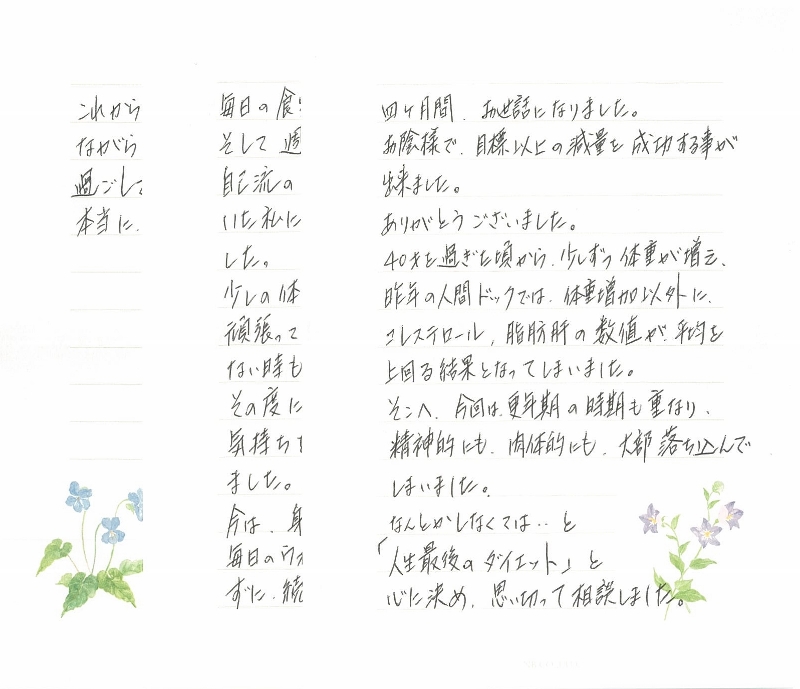 四ヶ月間、お世話になりました。
お陰様で、目標以上の減量を成功する事が
出来ました。
ありがとうございました。
40才を過ぎた頃から、少しずつ体重が増え、
昨年の人間ドックでは、体重増加以外に、
コレステロール、脂肪肝の数値が平均を
上回る結果となってしまいました。
そこへ、今回は更年期の時期も重なり、
精神的にも、肉体的にも、大部落ち込んで
しまいました。
なんとかしなくては‥と
「人生最後のダイエット」と
心に決め、思い切って相談しました。
毎日の食
そして週
自己流の
いた私に
した。
少しの体
頑張って
ない時も
その度に
気持ちを
ました。
今は、身
毎日のウォ
ずに、続
これから
ながら
過ごして
本当に、